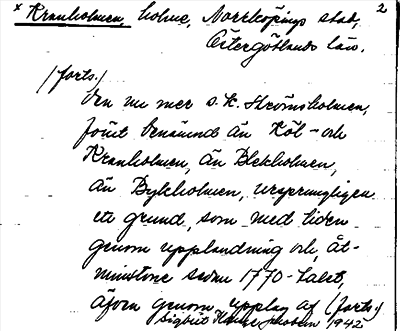 x Kranholmen, holme, Norrköpings stad, 2
Östergötlands län.
(forts.)
Den nu mer s.k. Strömsholmen,
förut benämnd än Köl- och
Kranholmen, än Blekholmen,
än Bykholmen, ursprungligen
ett grund, som med tiden
genom upplandning och, åt-
minstone sedan 1770-talet,
äfven genom upplag af (forts.)
1942